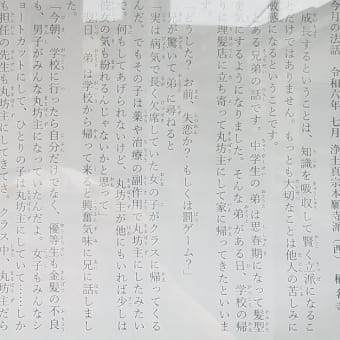 今月の法話　令和六年　七月　浄土真宗本願寺派(西)
成長するということは、知識を吸収して賢く立派になるこ
とだけではありません。もっと大切なことは他人の苦しみに
敏感になるということです。
ある兄弟の話です。中学生の弟は思春期になって髪型
を気にするようになりました。そんな弟がある日、学校の帰
りに理髪店に立ち寄って丸坊主にして家に帰ってきたといいま
す。
「どうした？お前、失恋か？もしくは罰ゲーム？」
兄が驚いて弟に尋ねると
「実は病気で長く欠席していた女の子がクラスに帰ってくる
んだ。でもその子は薬や治療の副作用で丸坊主にしたみたい
で。何もしてあげられないけど、丸坊主が他にもいれば少しは
彼女の気も紛れるんじゃないかと思って」
翌日、弟は学校から帰って来ると興奮気味に兄に話しまし
た。
「今朝、学校に行ったら自分だけでなく、優等生も金髪の不良
も、男子がみんな丸坊主になっていたんだよ。女子もみんなシ
ョートカットにして、ひとりの子は丸坊主にしていて……しか
も担任の先生も丸坊主にしてきてさ、クラス中、丸坊主だら